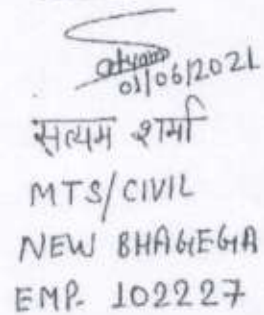 Satyam
01/06/2021
सत्यम शर्मा
MTS/CIVIL
NEW BHAGEGA
EMP- 102227